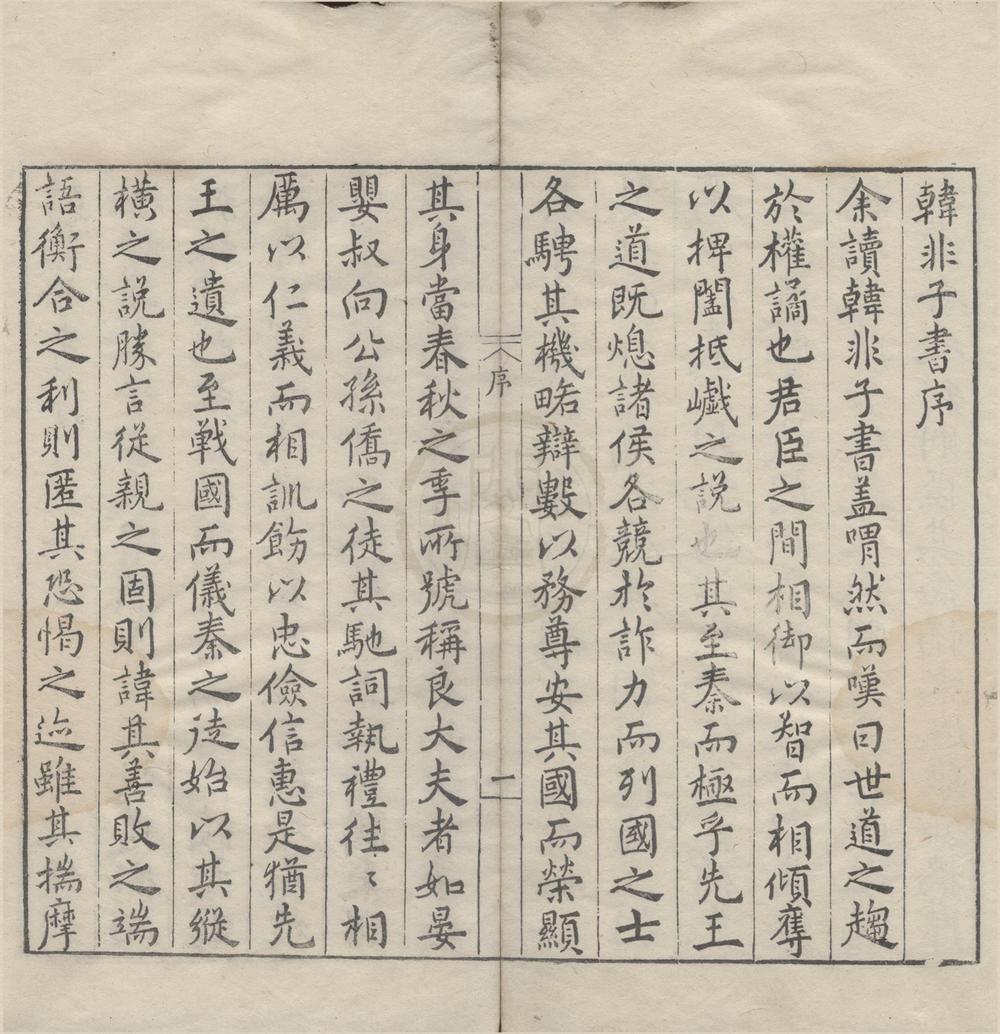 韓非子書序
余讀韓非子書盖喟然而嘆曰世道之趨
於權譎也君臣之間相御以智而相傾奪
以捭闔抵巇之說也其至秦而極乎先王
之道既熄諸侯各競於詐力而列國之士
各騁其機略辯數以務尊安其國而榮顯
序
一
其身當春秋之季所號稱良大夫者如晏
嬰叔向公孫僑之徒其馳詞執禮往〻相
厲以仁義而相訓飭以忠儉信惠是猶先
王之遺也至戰國而儀秦之徒始以其縱
橫之說勝言從親之固則諱其善敗之端
語衡合之利則匿其恐愒之迹雖其揣摩